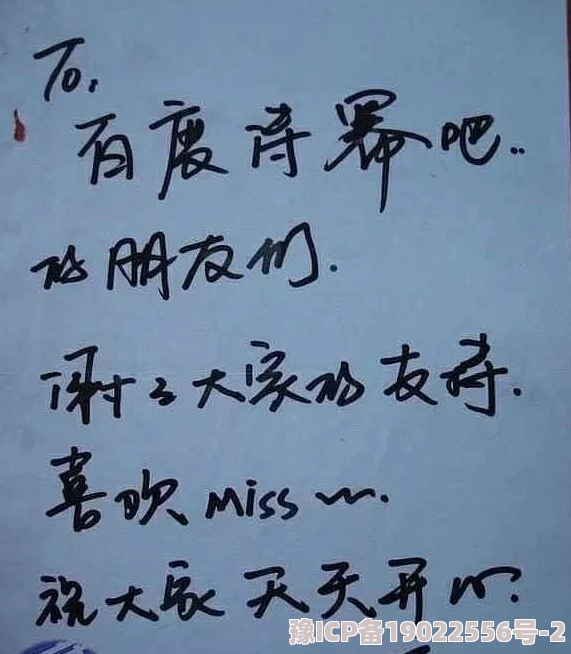 To.
百度诗幂吧..
的朋友们.
谢谢大家的支持.
喜欢Miss~~.
祝大家天天开心.
豫ICP备19022556号-2